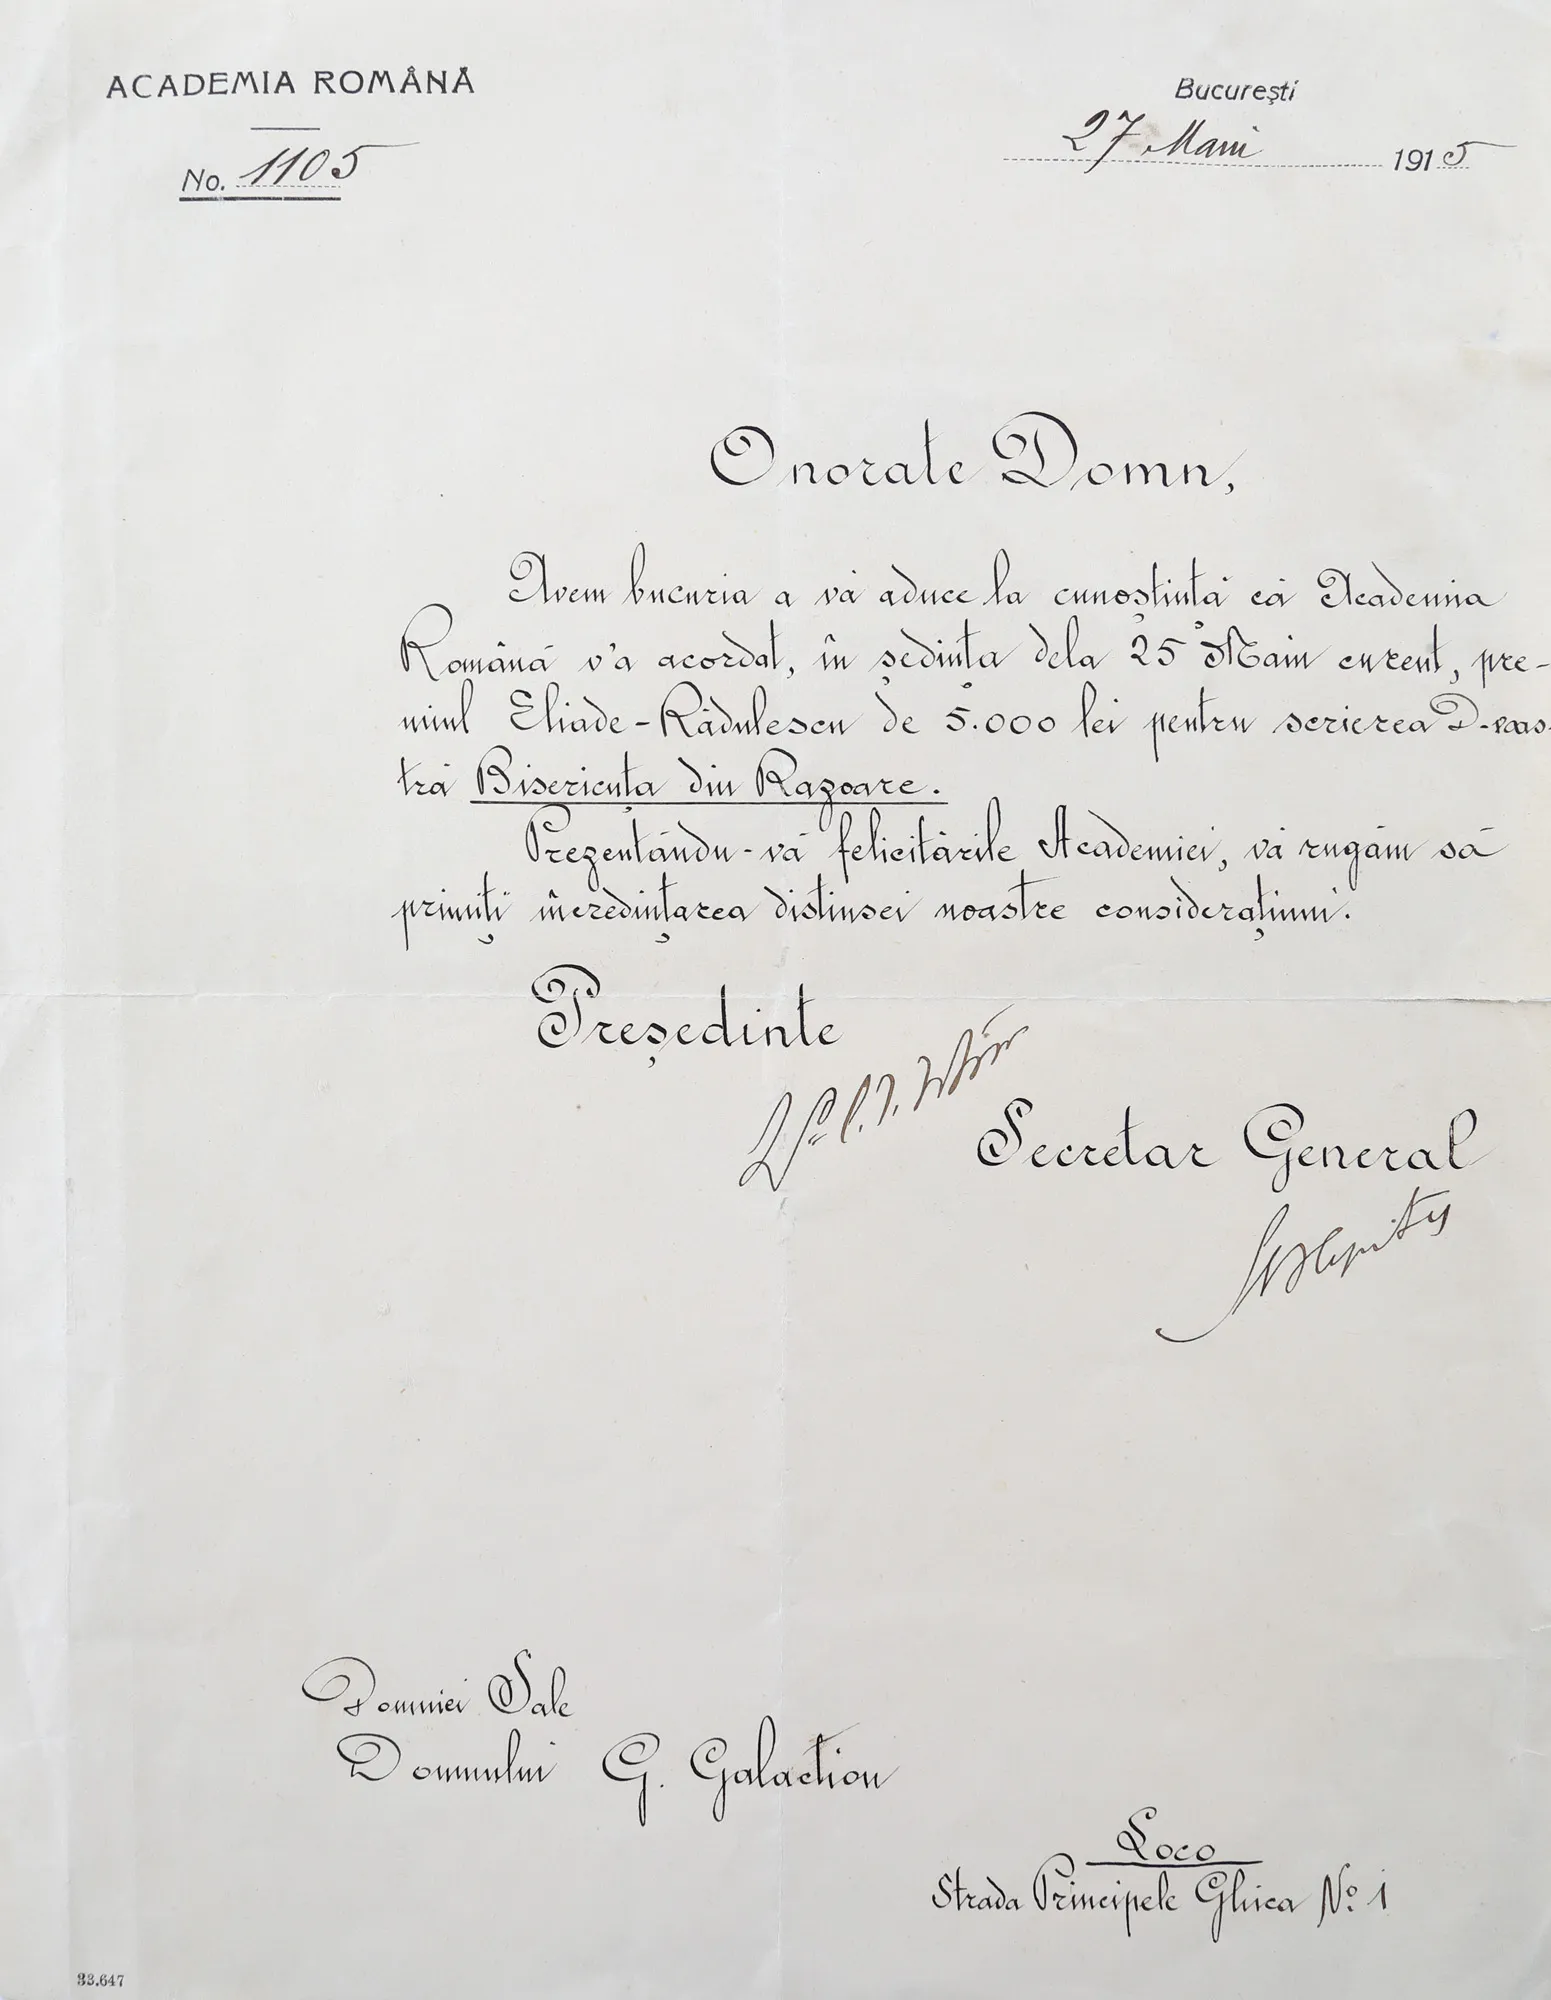 ACADEMIA ROMÂNĂ
No. 1105
București
27 Maiu 1915
Onorate Domn,
Avem bucuria a vă aduce la cunoștință că Academia
Română v'a acordat, în ședința dela 25 Maiu curent, pre-
miul Eliade-Rădulescu de 5.000 lei pentru scrierea D-voas-
tră Bisericuța din Razoare.
Prezentându-vă felicitările Academiei, vă rugăm să
primiți încredințarea distinsei noastre considerațiuni.
Președinte
Secretar General
Domniei Sale
Domnului G. Galaction
Loco
Strada Principele Ghica No. 1
33.647